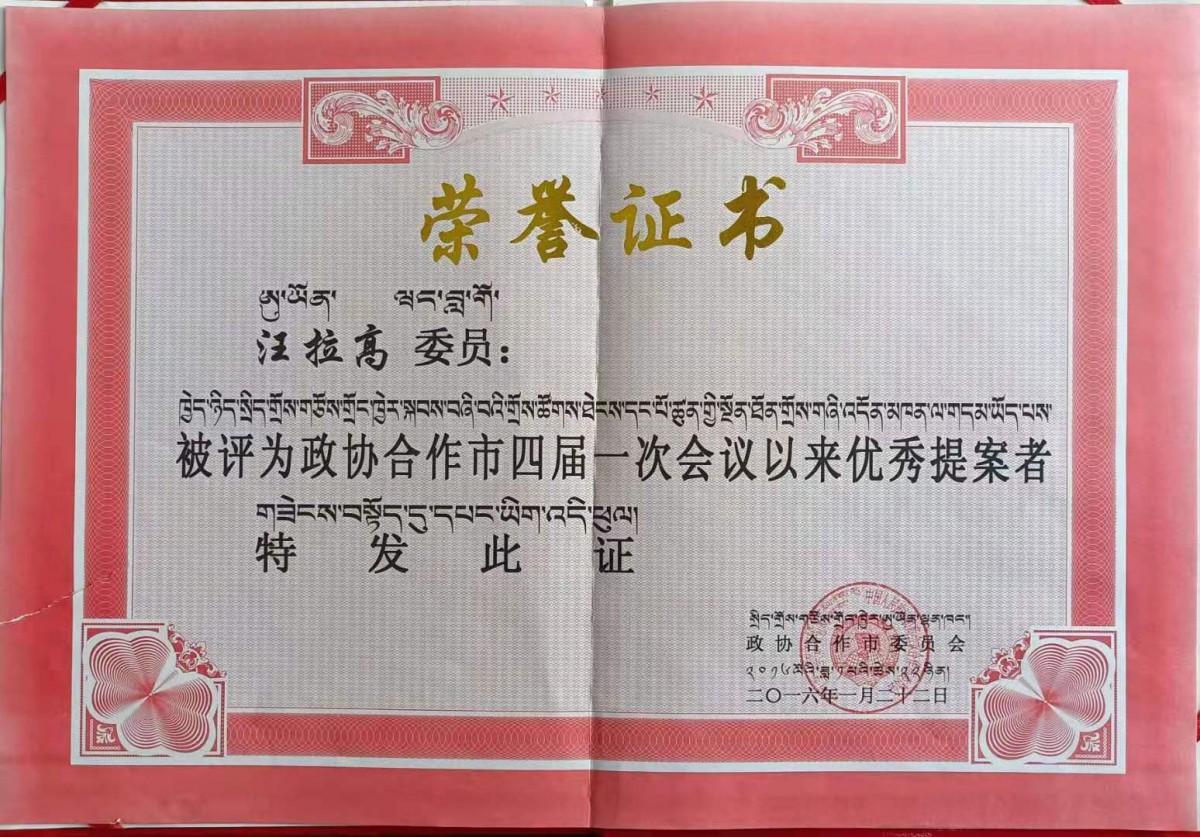 荣誉证书
ཨུ་ཡོན་ ཝང་བླ་གོ་
汪拉高 委员：
ཁྱེད་ཉིད་སྲིད་གྲོས་གཙོས་གྲོང་ཁྱེར་སྐབས་བཞི་བའི་གྲོས་ཚོགས་ཐེངས་དང་པོ་ཚུན་གྱི་སྔོན་ཐོན་གྲོས་གཞི་འདོན་མཁན་ལ་གདམ་ཡོད་པས་
被评为政协合作市四届一次会议以来优秀提案者
གཟེངས་བསྟོད་དུ་དཔང་ཡིག་འདི་ཕུལ།
特发此证
སྲིད་གྲོས་གཙོས་གྲོང་ཁྱེར་ཨུ་ཡོན་ལྷན་ཁང་།
政协合作市委员会
༢༠༡༦ལོའི་ཟླ་༡པའི་ཚེས་༢༢ཉིན།
二〇一六年一月二十二日
中国人民